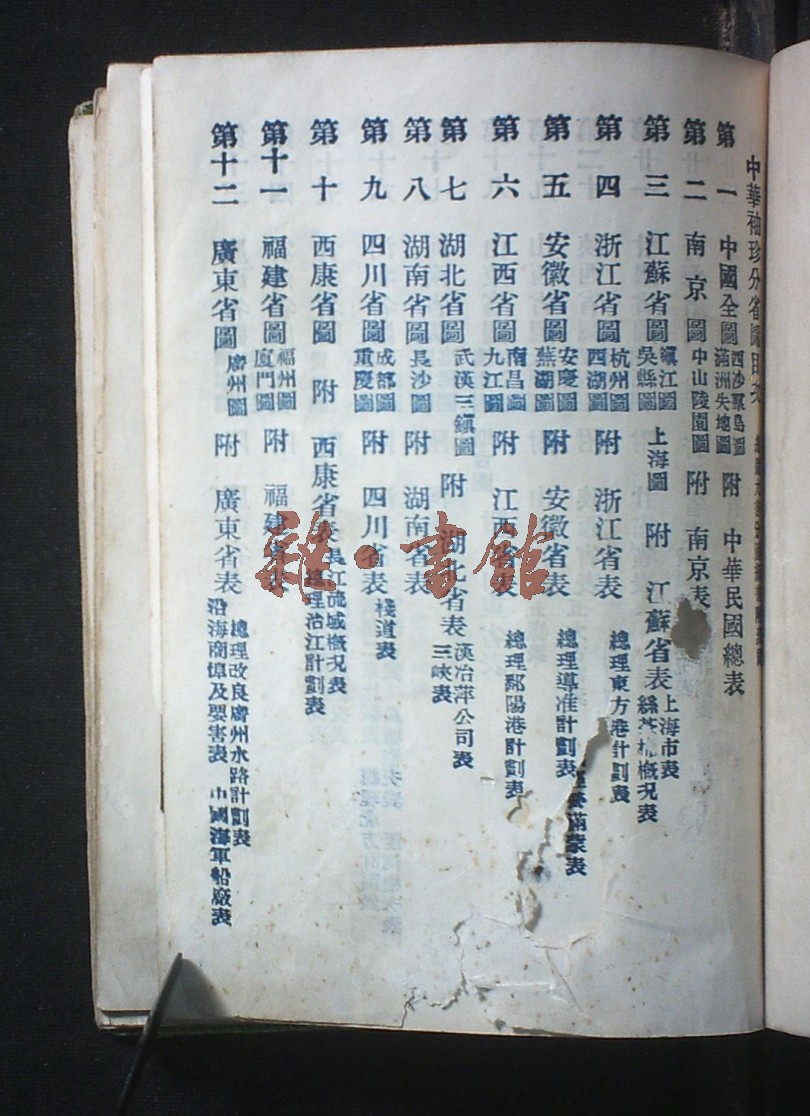 中華袖珍分省圖目次
第一 中國全圖 西沙羣島圖 滿洲失地圖 附 中華民國總表
第二 南京圖 中山陵園圖 附 南京表
第三 江蘇省圖 鎮江圖 吳縣圖 上海圖 附 江蘇省表 上海市表 概况表
第四 浙江省圖 杭州圖 西湖圖 附 浙江省表 總理東方港計劃表
第五 安徽省圖 安慶圖 蕪湖圖 附 安徽省表 總理導淮計劃表 滿蒙表
第六 江西省圖 南昌圖 九江圖 附 江西省表 總理鄱陽港計劃表
第七 湖北省圖 武漢三鎮圖 附 湖北省表 漢冶萍公司表 三峽表
第八 湖南省圖 長沙圖 附 湖南省表
第九 四川省圖 成都圖 重慶圖 附 四川省表 棧道表
第十 西康省圖 附 西康省表 吳江流域概况表 總理治江計劃表
第十一 福建省圖 福州圖 廈門圖 附 福建省表
第十二 廣東省圖 廣州圖 附 廣東省表 總理改良廣州水路計劃表 沿海商埠及要害表 中國海軍船廠表
雜·書館